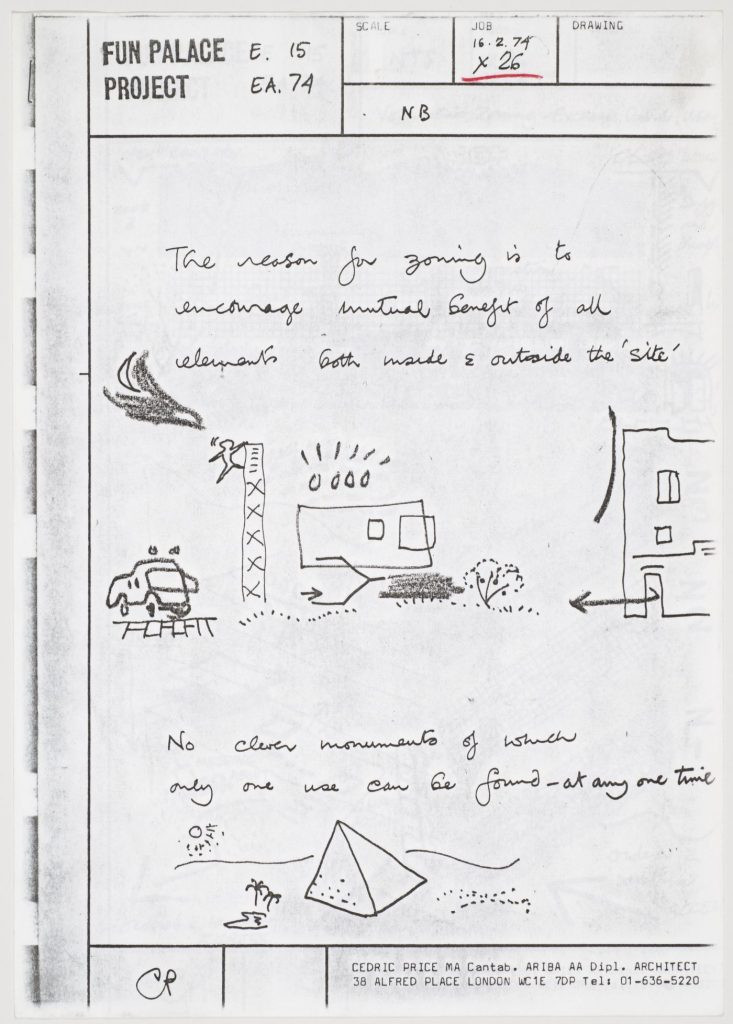 FUN PALACE E. 15
PROJECT EA. 74
SCALE
JOB
16.2.74
X 26
DRAWING
NB
The reason for zoning is to
encourage mutual benefit of all
elements both inside & outside the 'site'
No clever monuments of which
only one use can be found - at any one time
CP
CEDRIC PRICE MA Cantab. ARIBA AA Dipl. ARCHITECT
38 ALFRED PLACE LONDON WC1E 7DP Tel: 01-636-5220